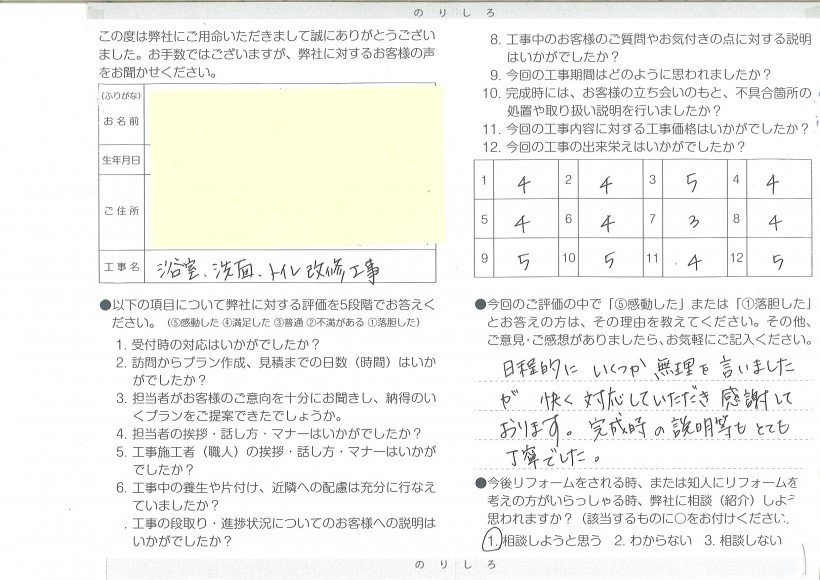 のりしろ
この度は弊社にご用命いただきまして誠にありがとうござい
ました。お手数ではございますが、弊社に対するお客様の声
をお聞かせください。
(ふりがな)
お名前
生年月日
ご住所
工事名 浴室、洗面、トイレ改修工事
●以下の項目について弊社に対する評価を5段階でお答えく
ださい。（⑤感動した ④満足した ③普通 ②不満がある ①落胆した）
1. 受付時の対応はいかがでしたか？
2. 訪問からプラン作成、見積までの日数（時間）はいか
がでしたか？
3. 担当者がお客様のご意向を十分にお聞きし、納得のい
くプランをご提案できたでしょうか。
4. 担当者の挨拶・話し方・マナーはいかがでしたか？
5. 工事施工者（職人）の挨拶・話し方・マナーはいかが
でしたか？
6. 工事中の養生や片付け、近隣への配慮は充分に行なえ
ていましたか？
. 工事の段取り・進捗状況についてのお客様への説明は
いかがでしたか？
8. 工事中のお客様のご質問やお気付きの点に対する説明
はいかがでしたか？
9. 今回の工事期間はどのように思われましたか？
10. 完成時には、お客様の立ち会いのもと、不具合箇所の
処置や取り扱い説明を行いましたか？
11. 今回の工事内容に対する工事価格はいかがでしたか？
12. 今回の工事の出来栄えはいかがでしたか？
1 4 2 4 3 5 4 4
5 4 6 4 7 3 8 4
9 5 10 5 11 4 12 5
●今回のご評価の中で「⑤感動した」または「①落胆した」
とお答えの方は、その理由を教えてください。その他、
ご意見・ご感想がありましたら、お気軽にご記入ください。
日程的に いくつか 無理を言いました
が 快く対応していただき 感謝して
おります。完成時の説明等も とても
丁寧でした。
●今後リフォームをされる時、または知人にリフォームを
考えの方がいらっしゃる時、弊社に相談（紹介）しよ
思われますか？（該当するものに○をお付けください.
1. 相談しようと思う 2. わからない 3. 相談しない
のりしろ